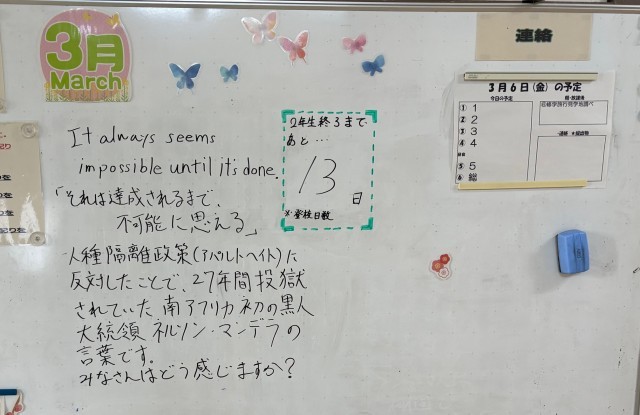 3月
March
It always seems
impossible until it's done.
「それは達成されるまで、
不可能に思える」
人種隔離政策(アパルトヘイト)に
反対したことで、27年間投獄
されていた南アフリカ初の黒人
大統領 ネルソン・マンデラの
言葉です。
みなさんはどう感じますか?
2年生終るまで
あと…
13
日
※登校日数
連絡
3月6日(金)の予定
今日の予定
① 1
② 2
③ 3
④ 4
⑤ 5
⑥ 総